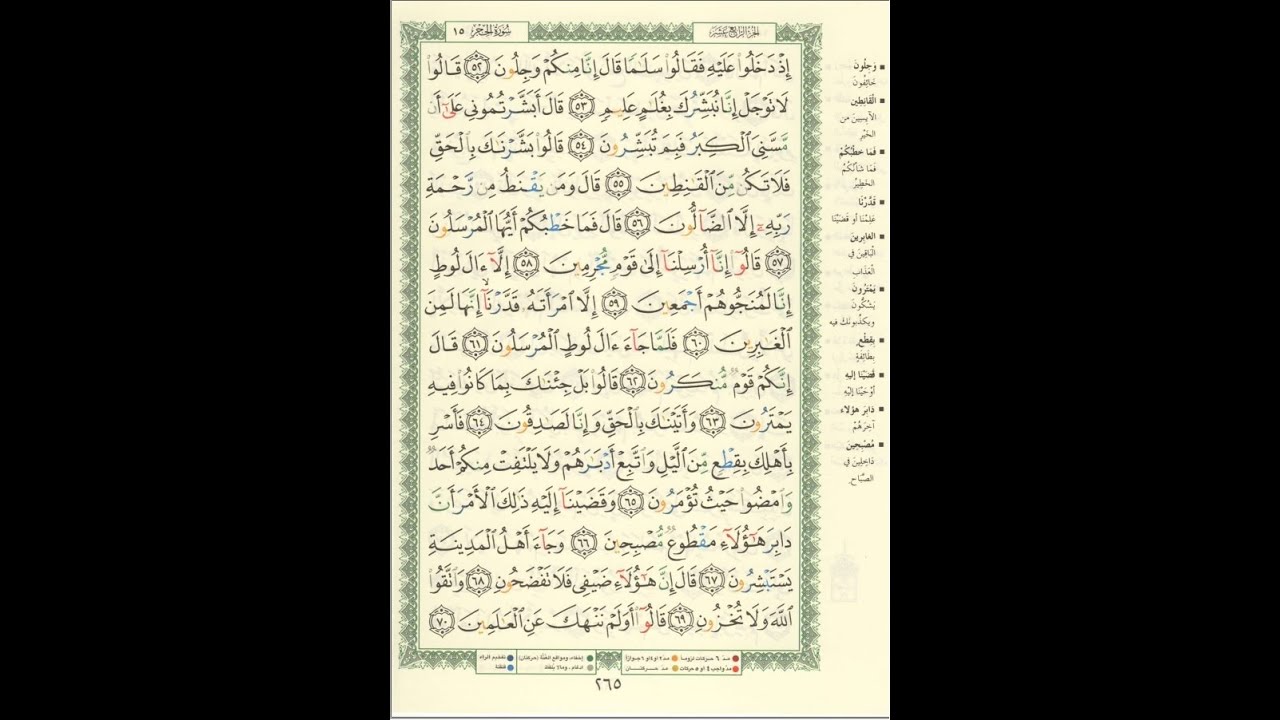 سُورَةُ الحِجْرِ ١٥
الجزء الرابع عشر
إِذْ دَخَلُوا۟ عَلَيْهِ فَقَالُوا۟ سَلَـٰمًا قَالَ إِنَّا مِنكُمْ وَجِلُونَ ٥٢ قَالُوا۟
لَا تَوْجَلْ إِنَّا نُبَشِّرُكَ بِغُلَـٰمٍ عَلِيمٍ ٥٣ قَالَ أَبَشَّرْتُمُونِى عَلَىٰٓ أَن
مَّسَّنِىَ ٱلْكِبَرُ فَبِمَ تُبَشِّرُونَ ٥٤ قَالُوا۟ بَشَّرْنَـٰكَ بِٱلْحَقِّ
فَلَا تَكُن مِّنَ ٱلْقَـٰنِطِينَ ٥٥ قَالَ وَمَن يَقْنَطُ مِن رَّحْمَةِ
رَبِّهِۦٓ إِلَّا ٱلضَّآلُّونَ ٥٦ قَالَ فَمَا خَطْبُكُمْ أَيُّهَا ٱلْمُرْسَلُونَ
٥٧ قَالُوٓا۟ إِنَّآ أُرْسِلْنَآ إِلَىٰ قَوْمٍ مُّجْرِمِينَ ٥٨ إِلَّآ ءَالَ لُوطٍ
إِنَّا لَمُنَجُّوهُمْ أَجْمَعِينَ ٥٩ إِلَّا ٱمْرَأَتَهُۥ قَدَّرْنَآ ۙ إِنَّهَا لَمِنَ
ٱلْغَـٰبِرِينَ ٦٠ فَلَمَّا جَآءَ ءَالَ لُوطٍ ٱلْمُرْسَلُونَ ٦١ قَالَ
إِنَّكُمْ قَوْمٌ مُّنكَرُونَ ٦٢ قَالُوا۟ بَلْ جِئْنَـٰكَ بِمَا كَانُوا۟ فِيهِ
يَمْتَرُونَ ٦٣ وَأَتَيْنَـٰكَ بِٱلْحَقِّ وَإِنَّا لَصَـٰدِقُونَ ٦٤ فَأَسْرِ
بِأَهْلِكَ بِقِطْعٍ مِّنَ ٱلَّيْلِ وَٱتَّبِعْ أَدْبَـٰرَهُمْ وَلَا يَلْتَفِتْ مِنكُمْ أَحَدٌ
وَٱمْضُوا۟ حَيْثُ تُؤْمَرُونَ ٦٥ وَقَضَيْنَآ إِلَيْهِ ذَٰلِكَ ٱلْأَمْرَ أَنَّ
دَابِرَ هَـٰٓؤُلَآءِ مَقْطُوعٌ مُّصْبِحِينَ ٦٦ وَجَآءَ أَهْلُ ٱلْمَدِينَةِ
يَسْتَبْشِرُونَ ٦٧ قَالَ إِنَّ هَـٰٓؤُلَآءِ ضَيْفِى فَلَا تَفْضَحُونِ ٦٨ وَٱتَّقُوا۟
ٱللَّهَ وَلَا تُخْزُونِ ٦٩ قَالُوٓا۟ أَوَلَمْ نَنْهَكَ عَنِ ٱلْعَـٰلَمِينَ ٧٠
وَجِلُونَ
خَائِفُونَ
القَانِطِين
الآيِسِينَ مِن
الخَيْرِ
فَمَا خَطْبُكُمْ
فَمَا شَأْنُكُمُ
الخَطِيرُ
قَدَّرْنَا
عَلِمْنَا أو قَضَيْنَا
الغابِرين
الْبَاقِينَ فِي
الْعَذَابِ
يَمْتَرُونَ
يَشُكُّونَ
ويكذِّبونك فيه
بِقِطْعٍ
بِطَائِفَةٍ
قَضَيْنا إليهِ
أَوْحَيْنَا إِلَيْهِ
دَابِرَ هؤلاء
آخِرَهُمْ
مُصْبِحِين
دَاخِلِينَ فِي
الصَّبَاحِ
مد ٦ حركات لزوماً مد ٢ أو ٤ أو ٦ جوازاً إخفاء، ومواقع الغُنَّة (حركتان) تفخيم الراء
مدّ واجب ٤ أو ٥ حركات مد حركتان ادغام، وما لا يُلفَظ قلقلة
٢٦٥